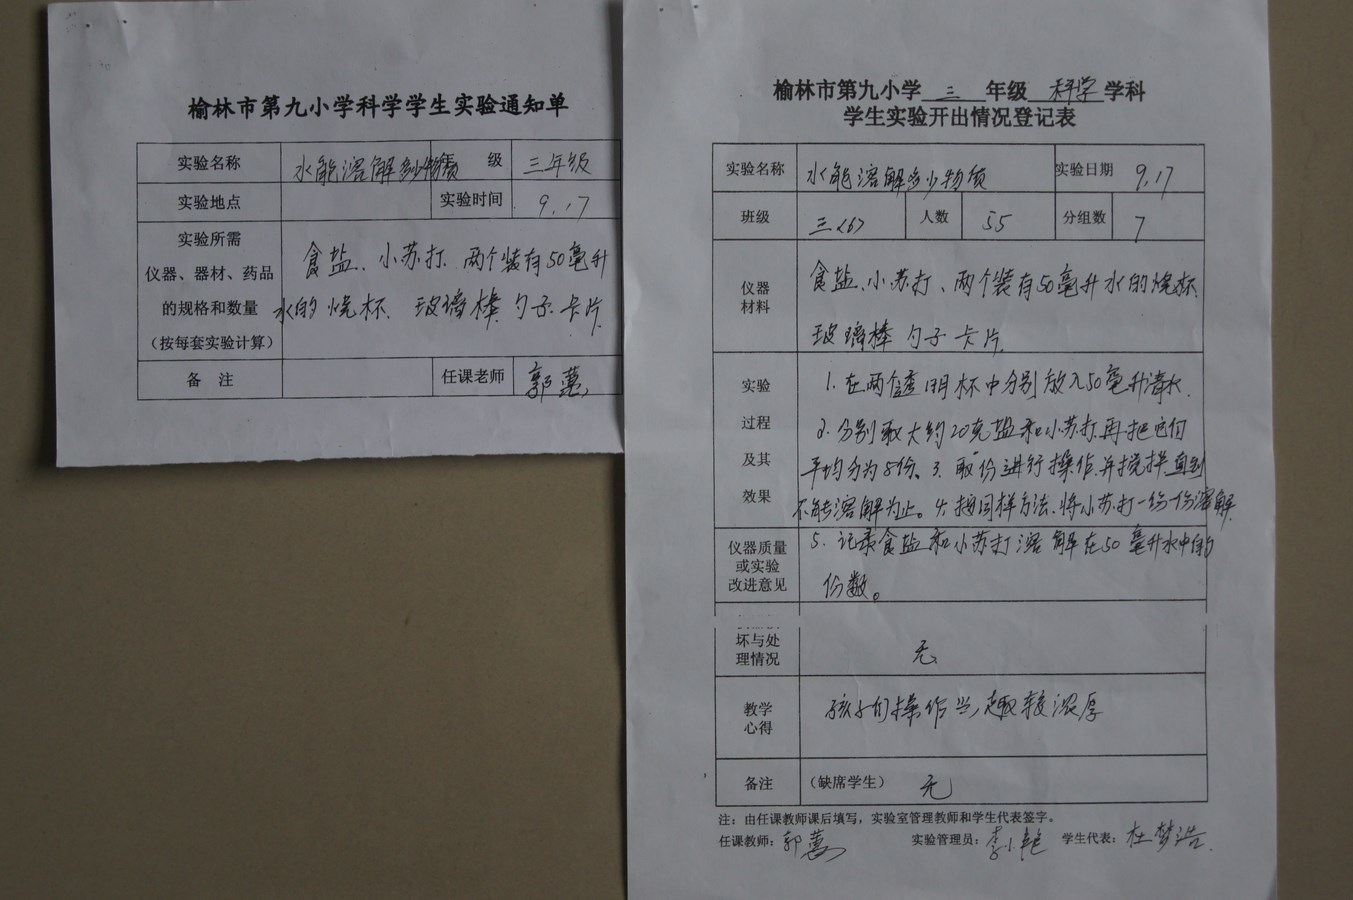 榆林市第九小学科学学生实验通知单
实验名称 水能溶解多少物质 级 三年级
实验地点 实验时间 9.17
实验所需
仪器、器材、药品
的规格和数量
（按每套实验计算）
食盐、小苏打、两个装有50毫升
水的烧杯、玻璃棒、勺子、卡片
备 注 任课老师 郭
榆林市第九小学 三 年级 科学 学科
学生实验开出情况登记表
实验名称 水能溶解多少物质 实验日期 9.17
班级 三<6> 人数 55 分组数 7
仪器
材料
食盐、小苏打、两个装有50毫升水的烧杯、
玻璃棒 勺子 卡片
实验
过程
及其
效果
1. 在两个透明杯中分别放入50毫升清水.
2. 分别取大约20克盐和小苏打,再把它们
平均分为8份、3. 取一份进行操作,并搅拌,直到
不能溶解为止。4. 按同样方法、将小苏打一份一份溶解.
仪器质量
或实验
改进意见
5. 记录食盐和小苏打溶解在50毫升水中的
份数。
坏与处
理情况
无
教学
心得
孩子们操作兴趣较浓厚
备注 （缺席学生） 无
注：由任课教师课后填写，实验室管理教师和学生代表签字。
任课教师：郭 实验管理员：李小艳 学生代表：杜梦浩